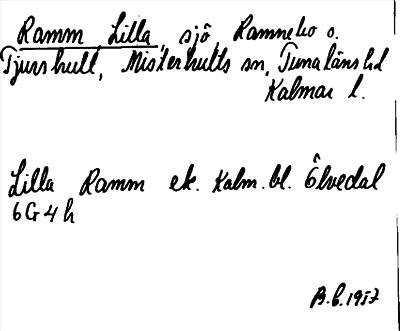 Ramm Lilla, sjö, Ramnebo o.
Tjurshult, Misterhults sn, Tunaläns hd
Kalmar l.
Lilla Ramm ek. Kalm. bl. Ölvedal
6G4h
B.E. 1957